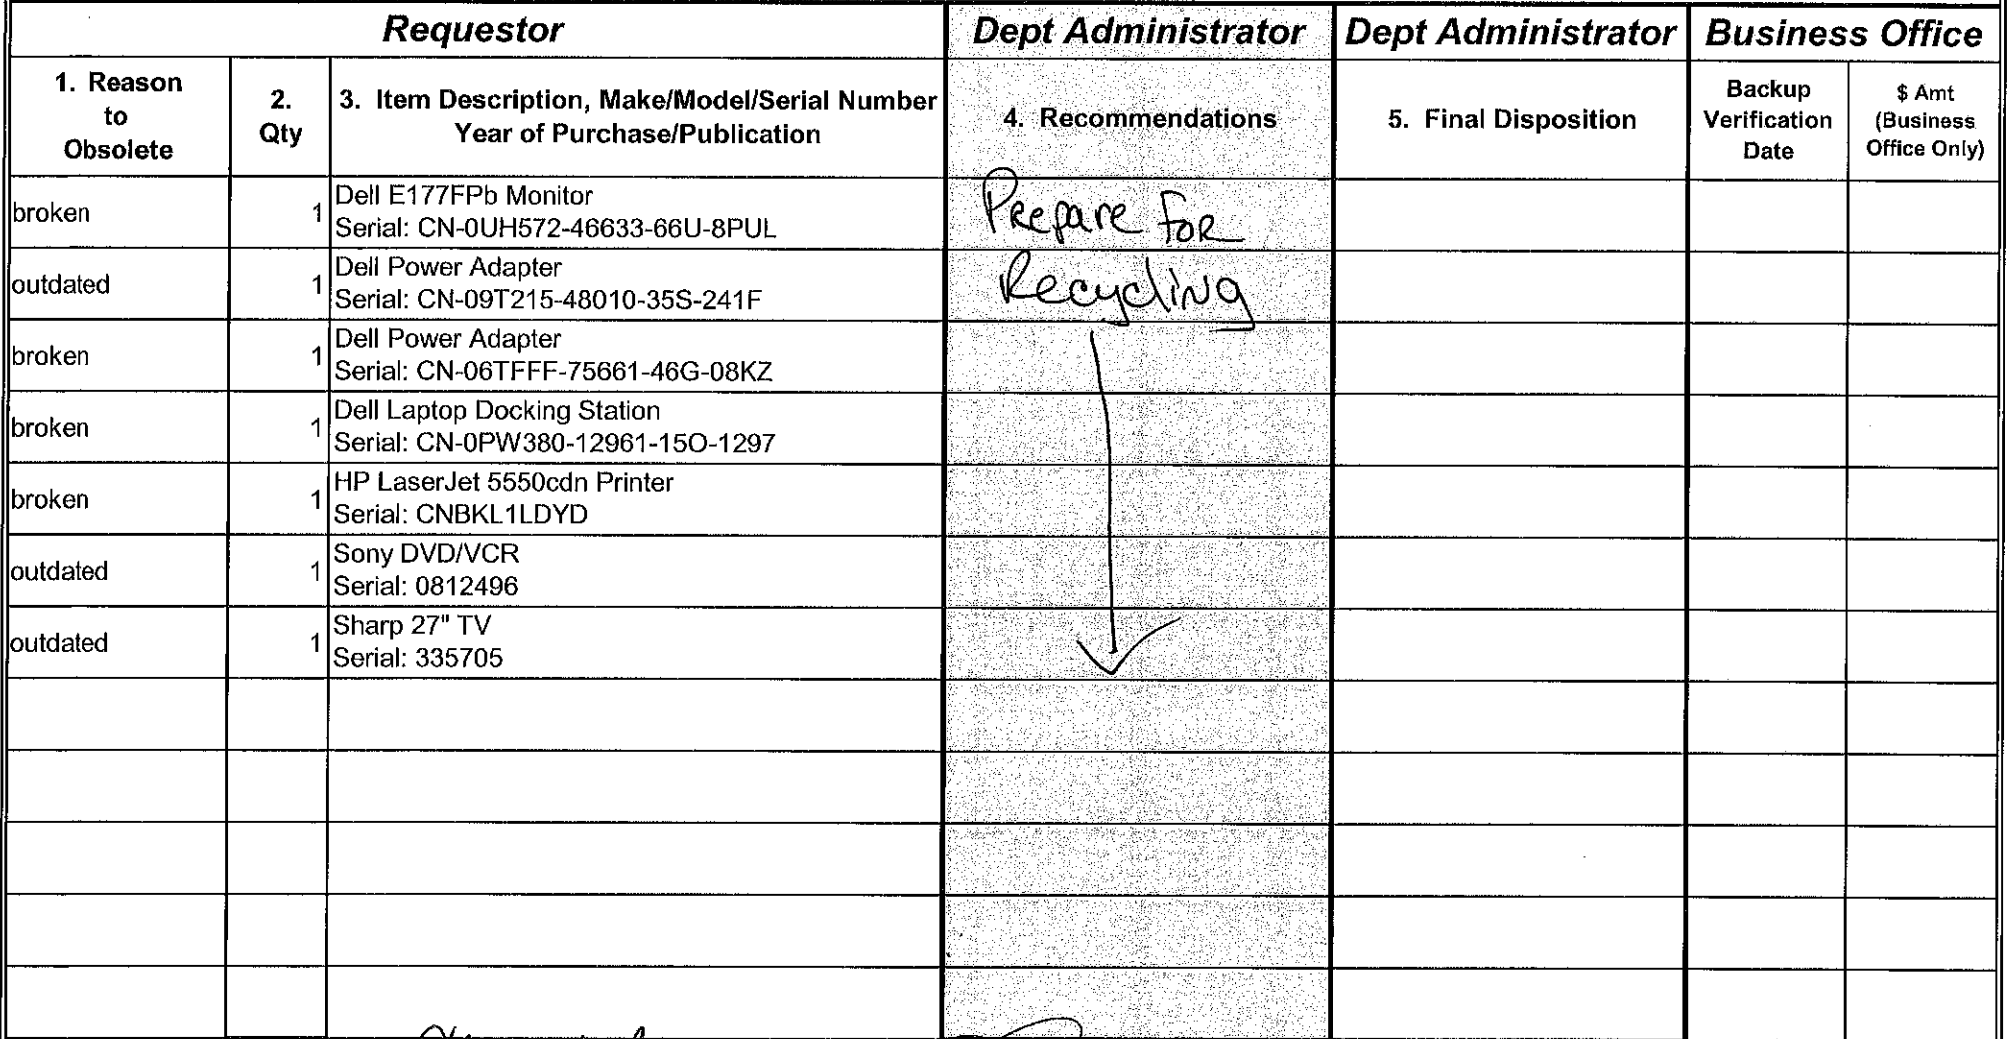 Requestor
Dept Administrator
Dept Administrator
Business Office
1. Reason
to
Obsolete
2.
Qty
3. Item Description, Make/Model/Serial Number
Year of Purchase/Publication
4. Recommendations
5. Final Disposition
Backup
Verification
Date
$ Amt
(Business
Office Only)
broken
1
Dell E177FPb Monitor
Serial: CN-0UH572-46633-66U-8PUL
Prepare for
outdated
1
Dell Power Adapter
Serial: CN-09T215-48010-35S-241F
Recycling
broken
1
Dell Power Adapter
Serial: CN-06TFFF-75661-46G-08KZ
broken
1
Dell Laptop Docking Station
Serial: CN-0PW380-12961-15O-1297
broken
1
HP LaserJet 5550cdn Printer
Serial: CNBKL1LDYD
outdated
1
Sony DVD/VCR
Serial: 0812496
outdated
1
Sharp 27" TV
Serial: 335705